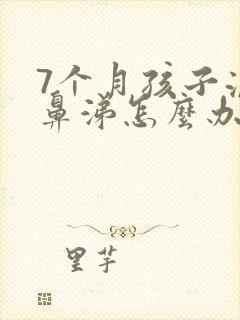 7个月孩子流
鼻涕怎麽办
里芋